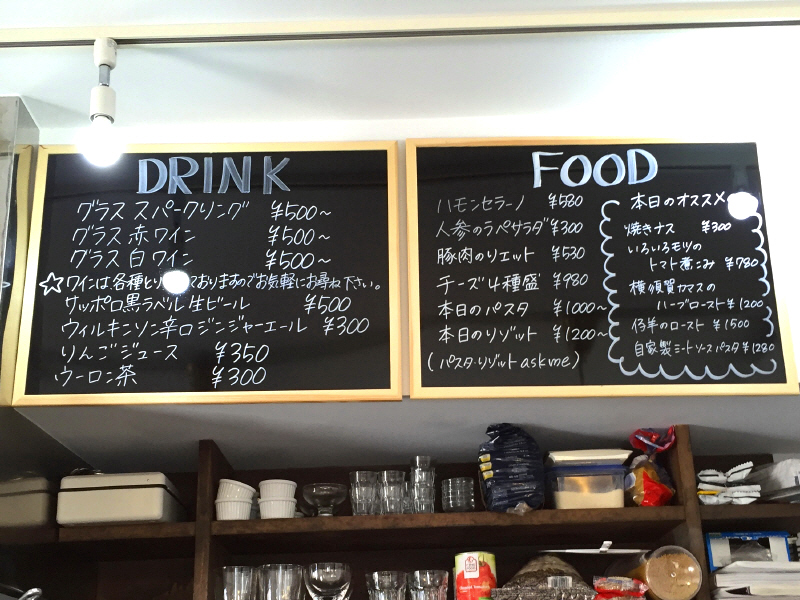 DRINK
グラス スパークリング ¥500~
グラス 赤ワイン ¥500~
グラス 白ワイン ¥500~
☆ワインは各種とり ておりますのでお気軽にお尋ね下さい。
サッポロ黒ラベル生ビール ¥500
ウィルキンソン辛口ジンジャーエール ¥300
りんごジュース ¥350
ウーロン茶 ¥300
FOOD
ハモンセラーノ ¥580
人参のラペサラダ ¥300
豚肉のリエット ¥530
チーズ4種盛 ¥980
本日のパスタ ¥1000~
本日のリゾット ¥1200~
(パスタ・リゾット ask me)
本日のオススメ
焼きナス ¥300
いろいろモツの
トマト煮こみ ¥780
横須賀カマスの
ハーブロースト ¥1200
仔羊のロースト ¥1500
自家製ミートソースパスタ ¥1280